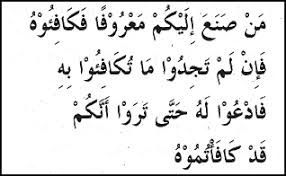 مَنْ صَنَعَ إِلَيْكُمْ مَعْرُوفًا فَكَافِئُوْهُ
فَإِنْ لَمْ تَجِدُوْا مَا تُكَافِئُوْا بِهِ
فَادْعُوْا لَهُ حَتَّى تَرَوْا أَنَّكُمْ
قَدْ كَافَأْتُمُوْهُ